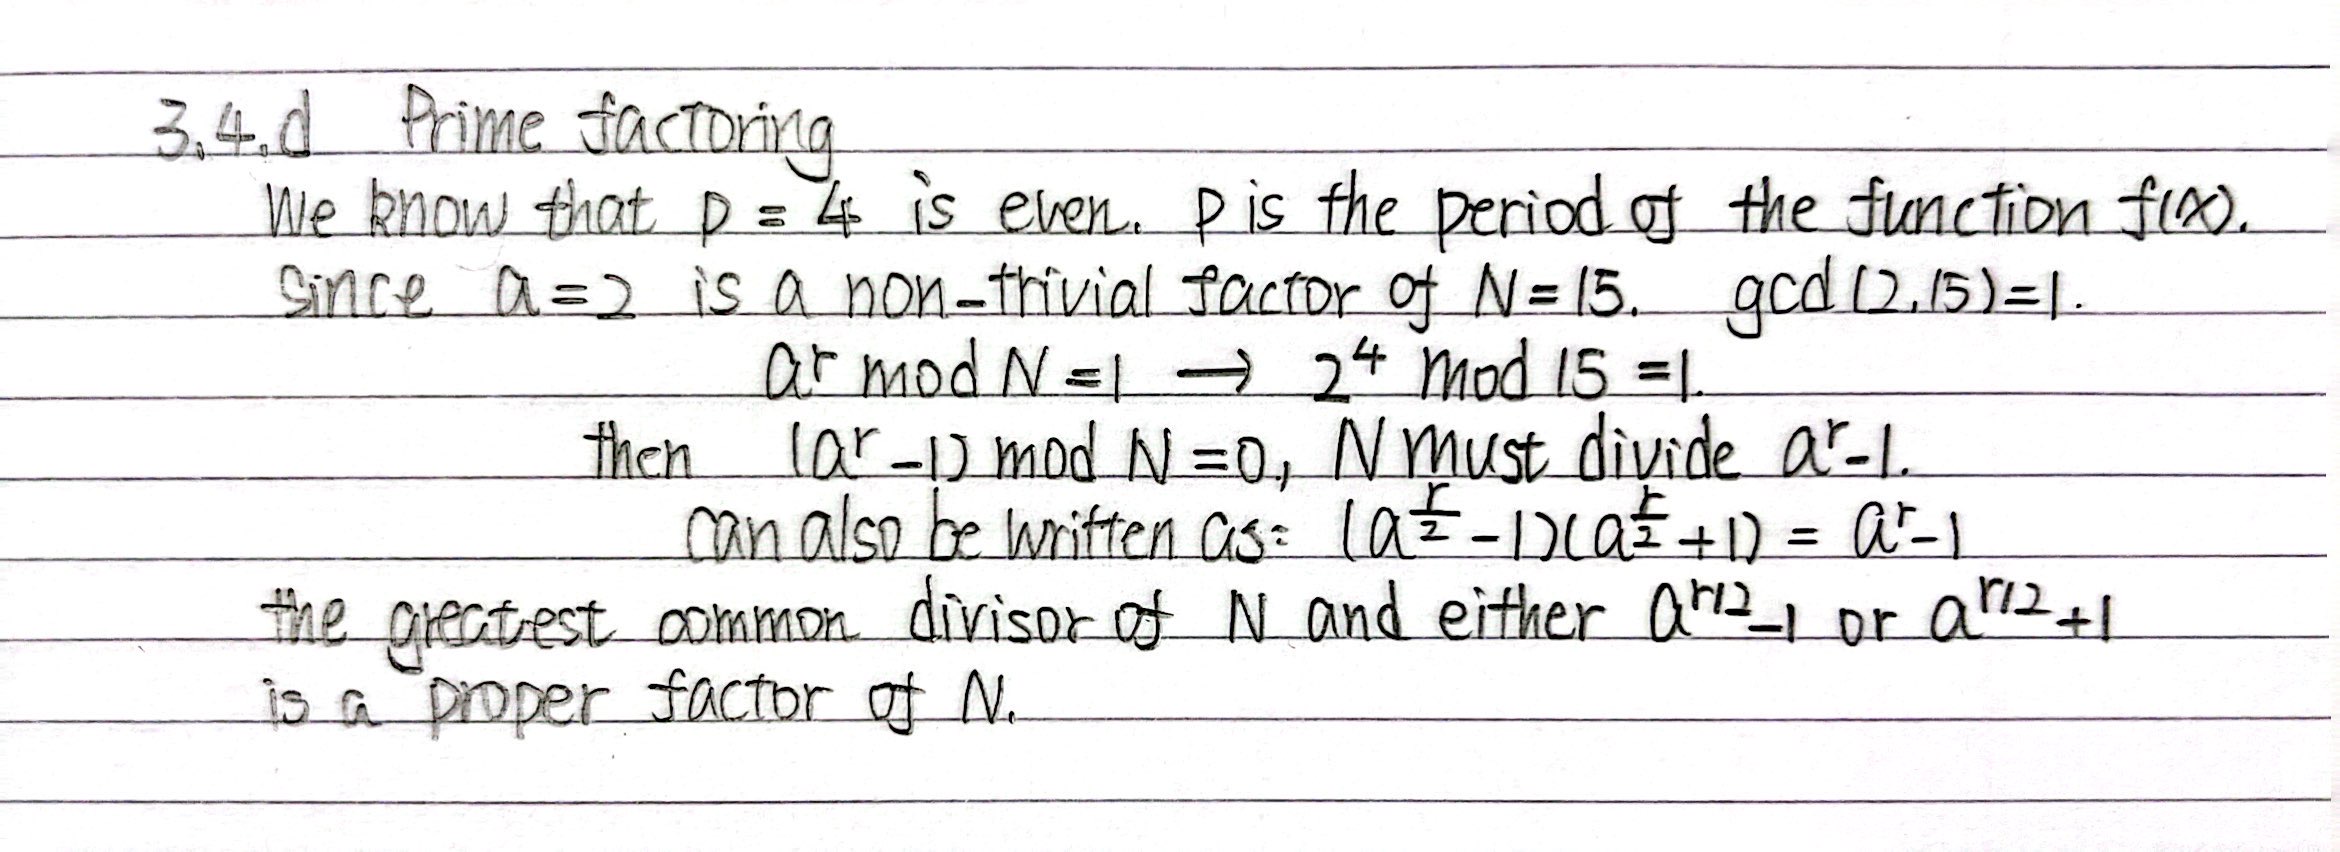 3.4.d Prime factoring
We know that p = 4 is even. p is the period of the function f(x).
Since a=2 is a non-trivial factor of N=15. gcd(2,15)=1.
a^r mod N =1 → 2^4 mod 15 =1.
then (a^r -1) mod N =0, N must divide a^r-1.
can also be written as: (a^{r/2} -1)(a^{r/2} +1) = a^r-1
the greatest common divisor of N and either a^{r/2}-1 or a^{r/2}+1
is a proper factor of N.